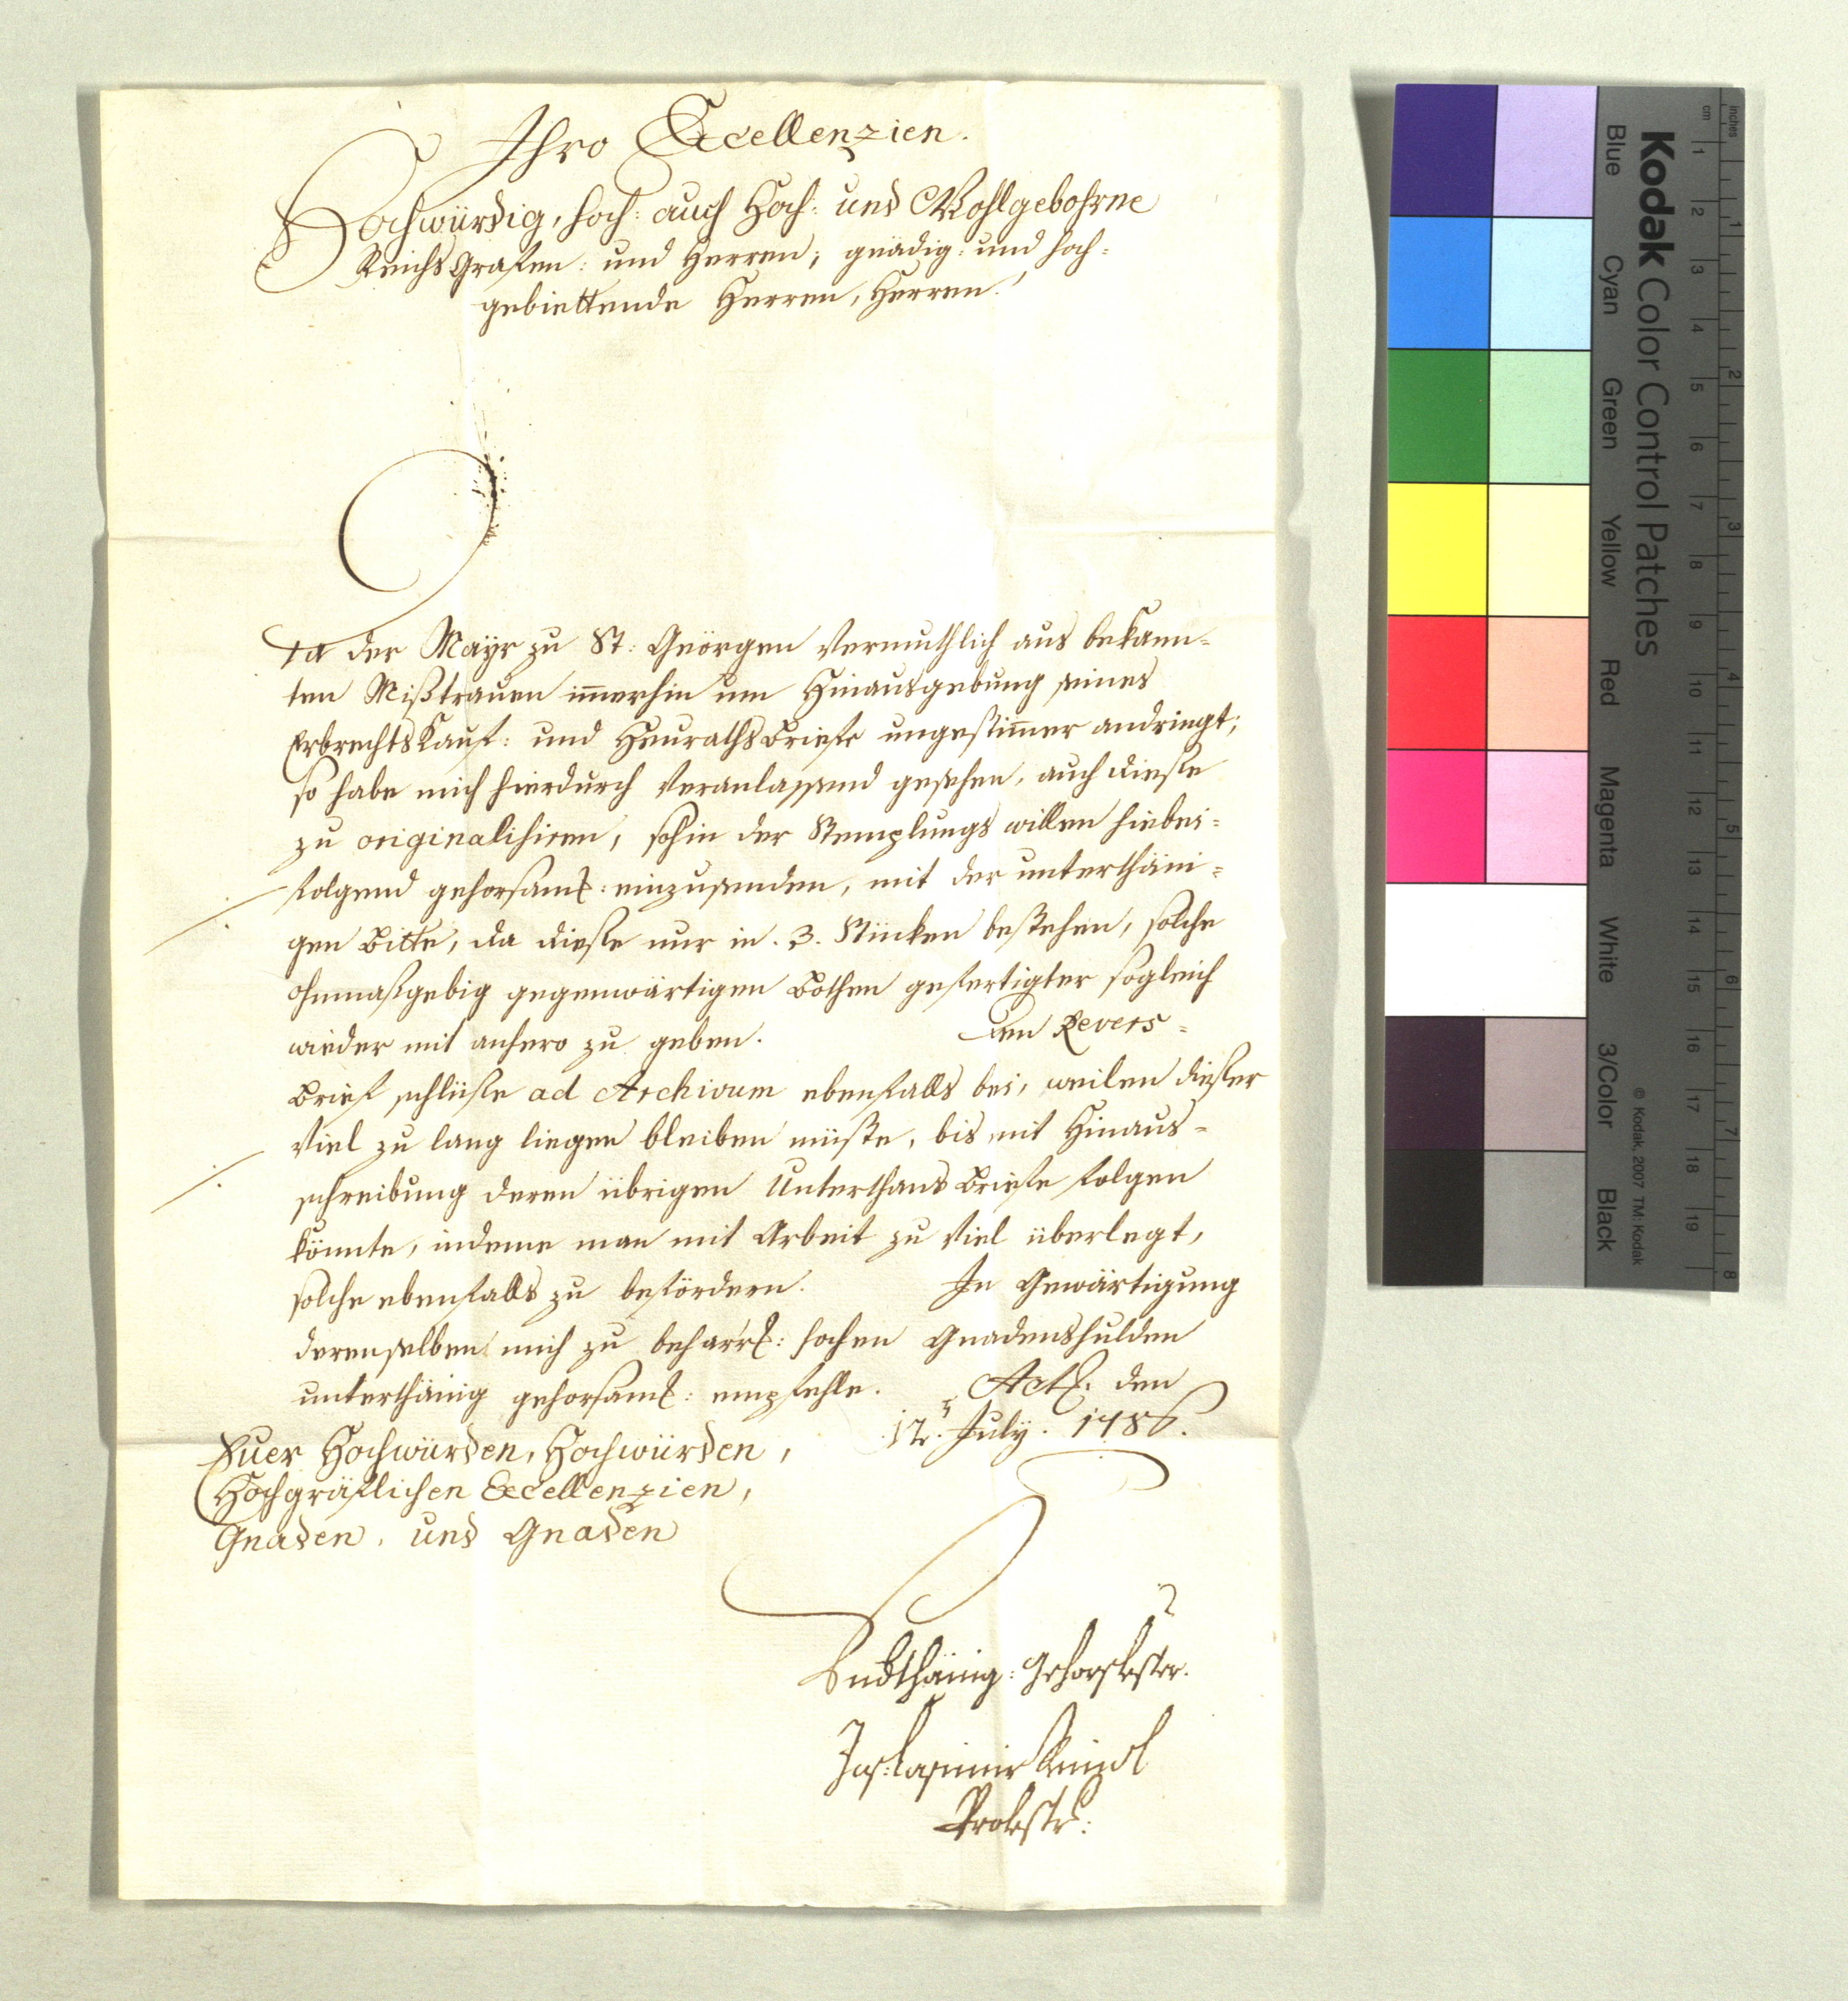 Ihro Excellenzien.
Hochwürdig, hoch: auch Hoch: und Wohlgebohrne
ReichsGrafen: und Herren; gnädig: und hoch=
gebiettende Herren, Herren!
Da der Mayr zu St: Geörgen vermuthlich aus bekann=
ten Mißtrauen im̄erhin um Hinausgebung seines
ErbrechtsKauf: und Heuraths Briefe ungestim̄er andringt;
so habe mich hierdurch veranlassend gesehen, auch diese
zu originalisiren, sohin der Stemplungs willen hiebei=
folgend gehorsaml: einzusenden, mit der unterthäni=
gen Bitte, da diese nur in .3. Stücken bestehen, solche
ohnmaßgebig gegenwärtigen Bothen gefertigter sogleich
wieder mit anhero zu geben. Den Revers=
Brief schlüße ad Archivum ebenfalls bei, weilen dieser
viel zu lang liegen bleiben müste, bis mit Hinaus=
schreibung deren übrigen Unterthans Briefe folgen
könnte, indeme man mit Arbeit zu viel überlegt,
solche ebenfalls zu befördern. In Gewärtigung
derenselben mich zu beharrl: hochen Gnadenshulden
unterthänig gehorsaml: empfehle. Actl. den
12. July. 1786.
Euer Hochwürden, Hochwürden,
Hochgräflichen Excellenzien,
Gnaden, und Gnaden
Undthänig: gehorsbster.
Jos: Casimir
Probstr: